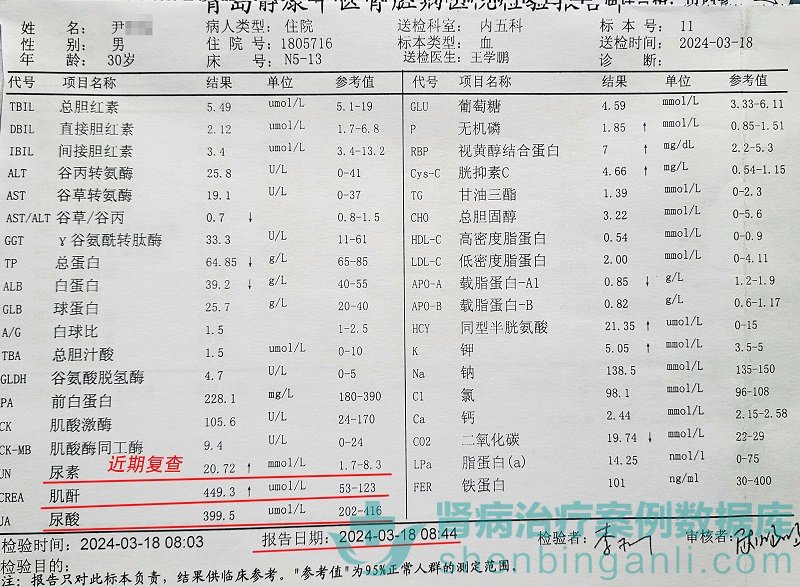 姓 名: 尹 病人类型: 住院 送检科室: 内五科 标 本 号: 11
性 别: 男 住 院 号: 1805716 标本类型: 血 送检时间: 2024-03-18
年 龄: 30岁 床 号: N5-13 送检医生: 王学鹏 诊 断:
代号 项目名称 结果 单位 参考值 代号 项目名称 结果 单位 参考值
TBIL 总胆红素 5.49 umol/L 5.1-19 GLU 葡萄糖 4.59 mmol/L 3.33-6.11
DBIL 直接胆红素 2.12 umol/L 1.7-6.8 P 无机磷 1.85 ↑ mmol/L 0.85-1.51
IBIL 间接胆红素 3.4 umol/L 3.4-13.2 RBP 视黄醇结合蛋白 7 ↑ mg/dL 2.2-5.3
ALT 谷丙转氨酶 25.8 U/L 0-41 Cys-C 胱抑素C 4.66 ↑ mg/L 0.54-1.15
AST 谷草转氨酶 19.1 U/L 0-37 TG 甘油三酯 1.39 mmol/L 0-2.3
AST/ALT 谷草/谷丙 0.7 ↓ 0.8-1.5 CHO 总胆固醇 3.22 mmol/L 0-5.6
GGT γ谷氨酰转肽酶 33.3 U/L 11-61 HDL-C 高密度脂蛋白 0.54 mmol/L 0-0.9
TP 总蛋白 64.85 ↓ g/L 65-85 LDL-C 低密度脂蛋白 2.00 mmol/L 0-4.11
ALB 白蛋白 39.2 ↓ g/L 40-55 APO-A 载脂蛋白-A1 0.85 ↓ g/L 1.2-1.9
GLB 球蛋白 25.7 g/L 20-40 APO-B 载脂蛋白-B 0.82 g/L 0.6-1.17
A/G 白球比 1.5 1-2.5 HCY 同型半胱氨酸 21.35 ↑ umol/L 0-15
TBA 总胆汁酸 1.5 umol/L 0-10 K 钾 5.05 ↑ mmol/L 3.5-5
GLDH 谷氨酸脱氢酶 4.7 U/L 0-5 Na 钠 138.5 mmol/L 135-150
PA 前白蛋白 228.1 mg/L 180-390 Cl 氯 98.1 mmol/L 96-108
CK 肌酸激酶 105.6 U/L 24-170 Ca 钙 2.44 mmol/L 2.15-2.58
CK-MB 肌酸酶同工酶 9.4 U/L 0-24 CO2 二氧化碳 19.74 ↓ mmol/L 22-29
UN 尿素 近期复查 20.72 ↑ mmol/L 1.7-8.3 LPa 脂蛋白(a) 14.25 nmol/l 0-75
CREA 肌酐 449.3 ↑ umol/L 53-123 FER 铁蛋白 101 ng/ml 30-400
UA 尿酸 399.5 umol/L 202-416
肾病治疗案例数据库
shenbinganli.com
检验时间: 2024-03-18 08:03 报告日期: 2024-03-18 08:44 检验者: 审核者:
检验目的:
注: 报告只对此标本负责, 结果供临床参考。"参考值"为95%正常人群的测定范围。